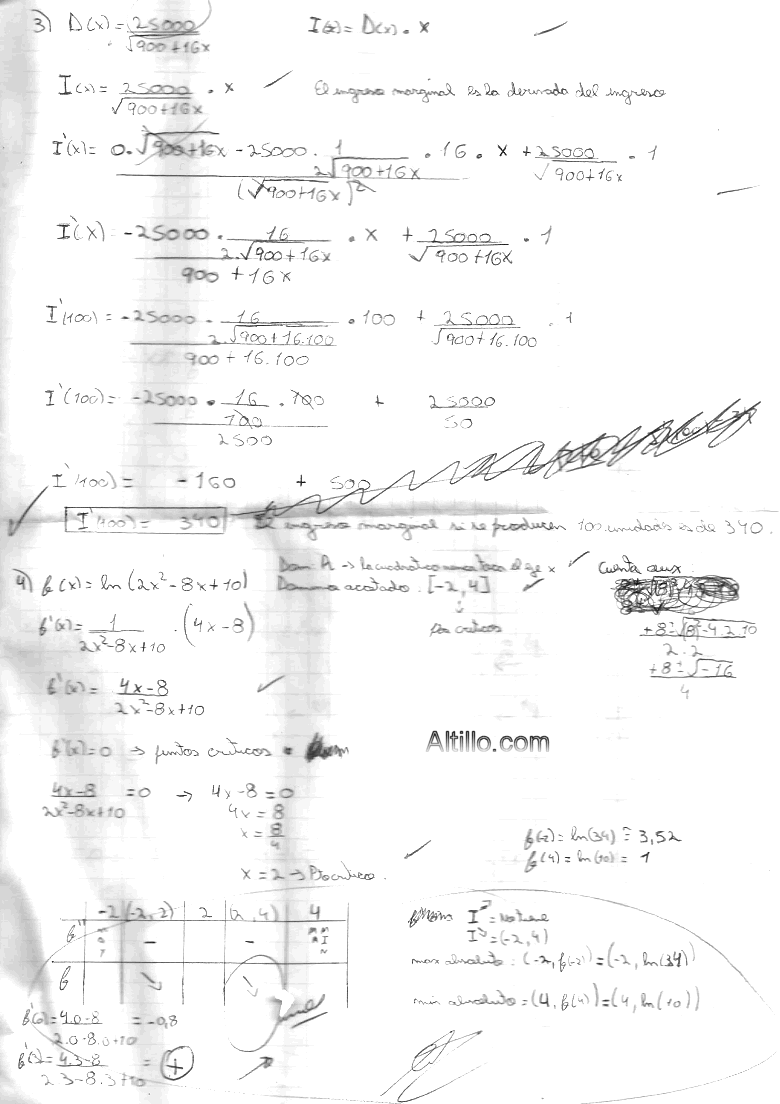 3) D(x) = 25000 / √900+16x   I(x) = D(x) . x
I(x) = 25000 / √900+16x . x   El ingreso marginal es la derivada del ingreso
I'(x) = 0.√900+16x - 25000 . 1 / 2√900+16x . 16 . x / (√900+16x)² + 25000 / √900+16x . 1
I'(x) = -25000 . 16 / 2.√900+16x / 900 + 16x . x + 25000 / √900+16x . 1
I'(100) = -25000 . 16 / 2.√900+16.100 / 900 + 16.100 . 100 + 25000 / √900+16.100 . 1
I'(100) = -25000 . 16 / 100 . 100 / 2500 + 25000 / 50
I'(100) = -160 + 500
I'(100) = 340 El ingreso marginal si se producen 100 unidades es de 340.
4) f(x) = ln(2x²-8x+10)   Dom: R -> la cuadratica nunca toca el eje x   Cuenta aux.
Dominio acotado: [-2,4]
f'(x) = 1 / 2x²-8x+10 . (4x-8)   ptos criticos   +8±√8²-4.2.10 / 2.2
+8±√-16 / 4
f'(x) = 4x-8 / 2x²-8x+10
Altillo.com
f'(x)=0 -> puntos criticos
4x-8 / 2x²-8x+10 = 0 -> 4x-8=0
4x = 8
x = 8 / 4
f(-2) = ln(34) ≅ 3,52
f(4) = ln(10) = 1
x = 2 -> Pto critico.
-2 (-2,2) 2 (2,4) 4
f' - -
f ↘ ↘
I↗ = No tiene
I↘ = (-2,4)
max absoluto: (-2, f(-2)) = (-2, ln(34))
min absoluto = (4, f(4)) = (4, ln(10))
f'(0) = 4.0-8 / 2.0-8.0+10 = -0,8
f'(3) = 4.3-8 / 2.3-8.3+10 = +